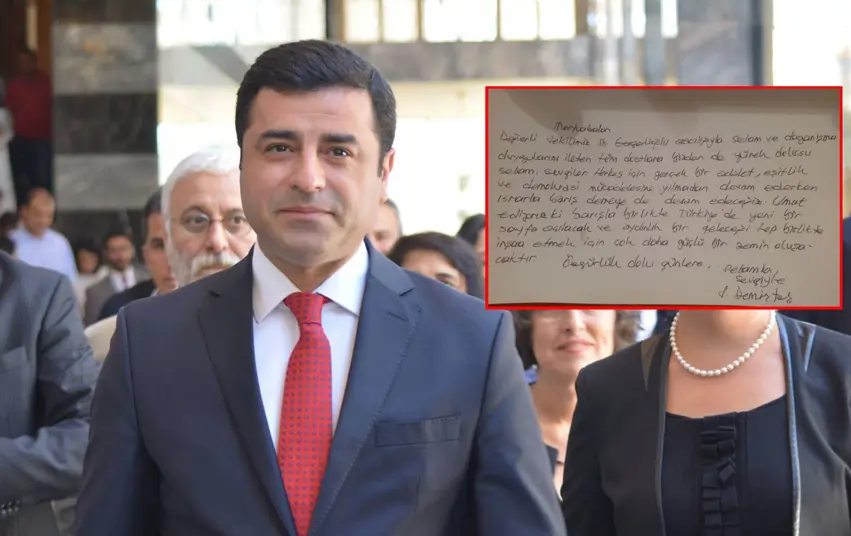 Merhabalar
Değerli vekilimiz Sn Gergerlioğlu aracılığıyla selam ve dayanışma
duygularını ileten tüm dostlara bizden de yürek dolusu
selam, sevgiler. Herkes için gerçek bir adalet, eşitlik
ve demokrasi mücadelesine yılmadan devam ederken
ısrarla barış demeye de devam edeceğiz. Umut
ediyoruz ki barışla birlikte Türkiye'de yeni bir
sayfa açılacak ve aydınlık bir geleceği hep birlikte
inşaa etmek için çok daha güçlü bir zemin oluşa-
caktır. Özgürlük dolu günlere.
Selamla,
sevgiyle
S. Demirtaş